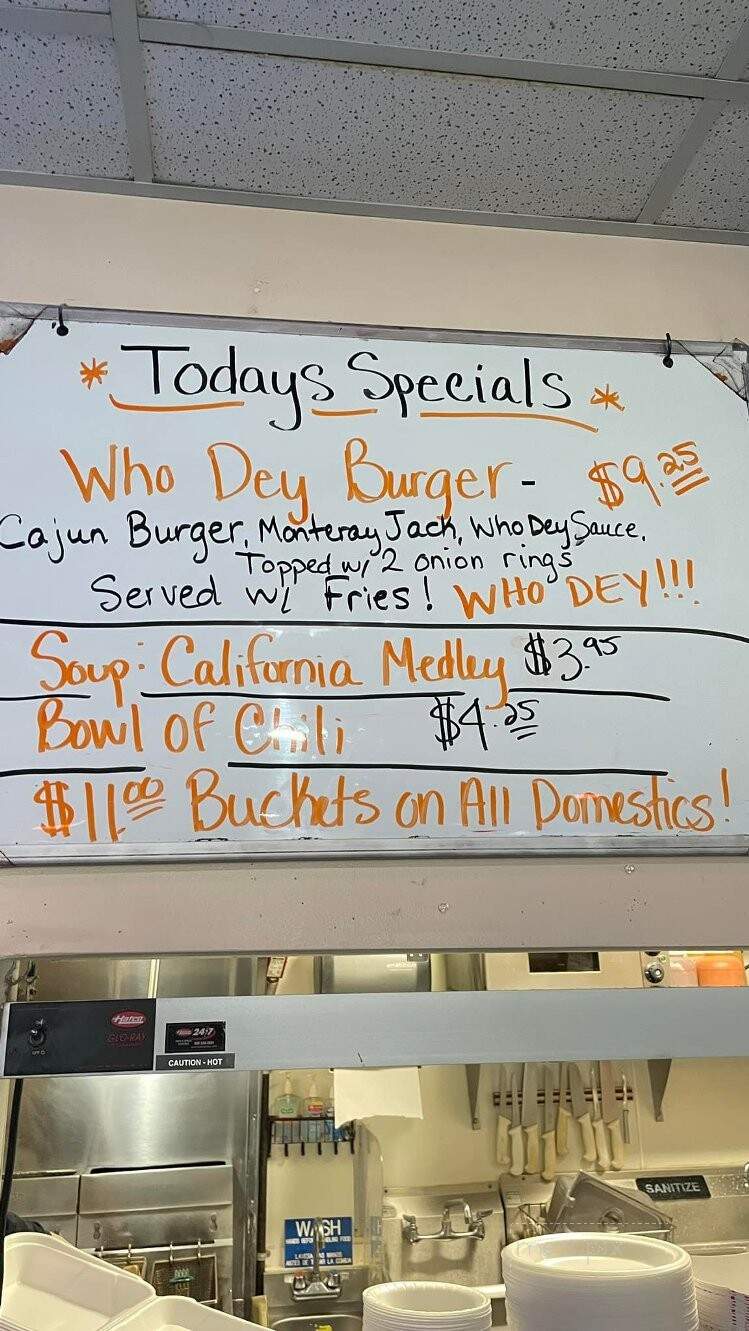 * Todays Specials *
Who Dey Burger - $9.25
Cajun Burger, Monteray Jack, Who Dey Sauce,
Topped w/ 2 onion rings
Served w/ Fries! WHO DEY!!!
Soup: California Medley $3.95
Bowl of Chili $4.25
$11.00 Buckets on All Domestics!
Hatco
GLO-RAY
24·7
CAUTION - HOT
SANITIZE
WASH